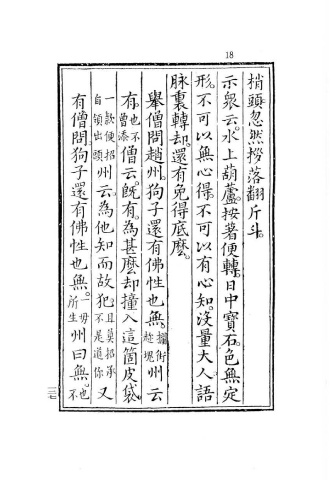 18
梢頭忽然拶落翻斤斗。
示衆云。水上葫蘆按著便轉。日中寶石。色無定
形。不可以無心得。不可以有心知。沒量大人語
脉裏轉却。還有免得底麼。
舉僧問趙州。狗子還有佛性也無。攔街趁塊州云
有。也不曾添僧云。既有。為甚麼却撞入這箇皮袋。
一款便招自領出頭州云。為他知而故犯。且莫招承不是道你又
有僧問。狗子還有佛性也無。一毋所生州曰無。也不